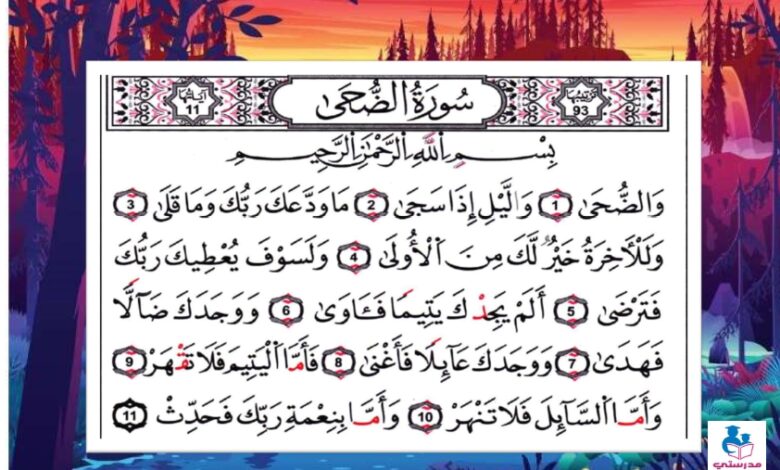 ترتيبها 93 سُورَةُ الضُّحَىٰ آياتها 11
بِسْمِ اللَّهِ الرَّحْمَٰنِ الرَّحِيمِ
وَالضُّحَىٰ 1 وَالَّيْلِ إِذَا سَجَىٰ 2 مَا وَدَّعَكَ رَبُّكَ وَمَا قَلَىٰ 3
وَلَلْأَخِرَةُ خَيْرٌ لَّكَ مِنَ الْأُولَىٰ 4 وَلَسَوْفَ يُعْطِيكَ رَبُّكَ
فَتَرْضَىٰ 5 أَلَمْ يَجِدْكَ يَتِيمًا فَـَٔاوَىٰ 6 وَوَجَدَكَ ضَآلًّا
فَهَدَىٰ 7 وَوَجَدَكَ عَآئِلًا فَأَغْنَىٰ 8 فَأَمَّا الْيَتِيمَ فَلَا تَقْهَرْ 9
وَأَمَّا السَّآئِلَ فَلَا تَنْهَرْ 10 وَأَمَّا بِنِعْمَةِ رَبِّكَ فَحَدِّثْ 11
مدرستي